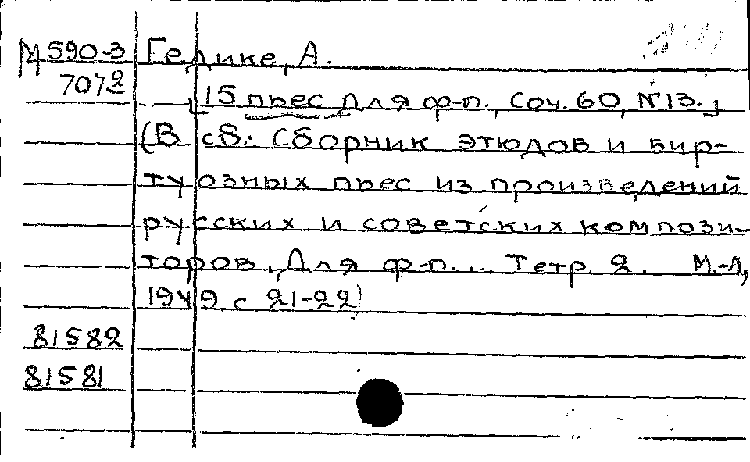 М 590-3 Гедике, А.
7072
[15 пьес для ф-п., Соч. 60, №13.]
(В сб: Сборник этюдов и вир-
туозных пьес из произведений
русских и советских компози-
торов. Для ф-п... Тетр 2. М.-Л,
1949 с 21-22)
81582
81581